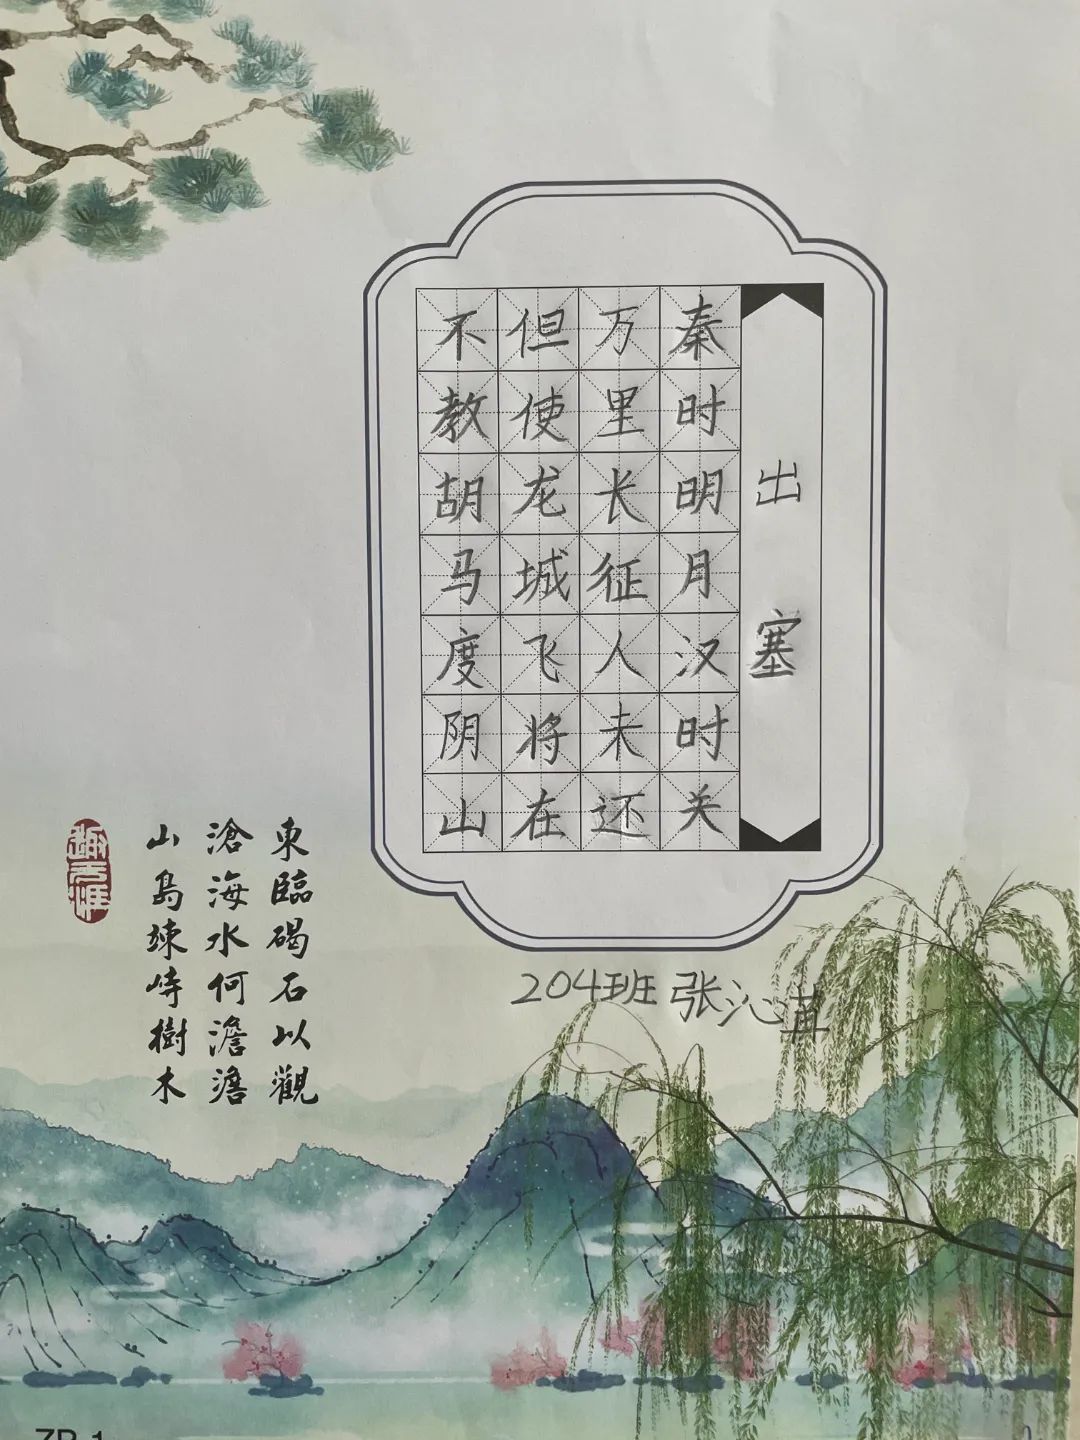 出塞
秦时明月汉时关
万里长征人未还
但使龙城飞将在
不教胡马度阴山
204班 张沁苒
東臨碣石以觀
滄海水何澹澹
山島竦峙樹木
ZP-1